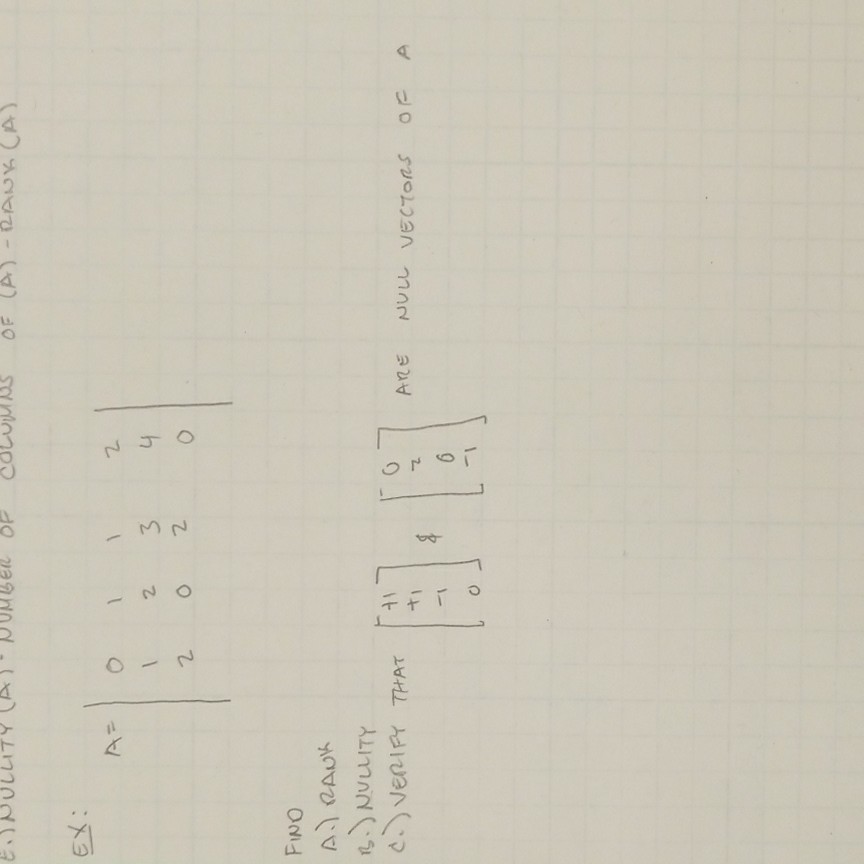 E.) NULLITY (A) = NUMBER OF COLUMNS OF (A) - RANK (A)
EX:
A = | 0 1 1 2 |
| 1 2 3 4 |
| 2 0 2 0 |
FIND
A.) RANK
B.) NULLITY
C.) VERIFY THAT [ +1 +1 -1 0 ] & [ 0 2 0 -1 ] ARE NULL VECTORS OF A